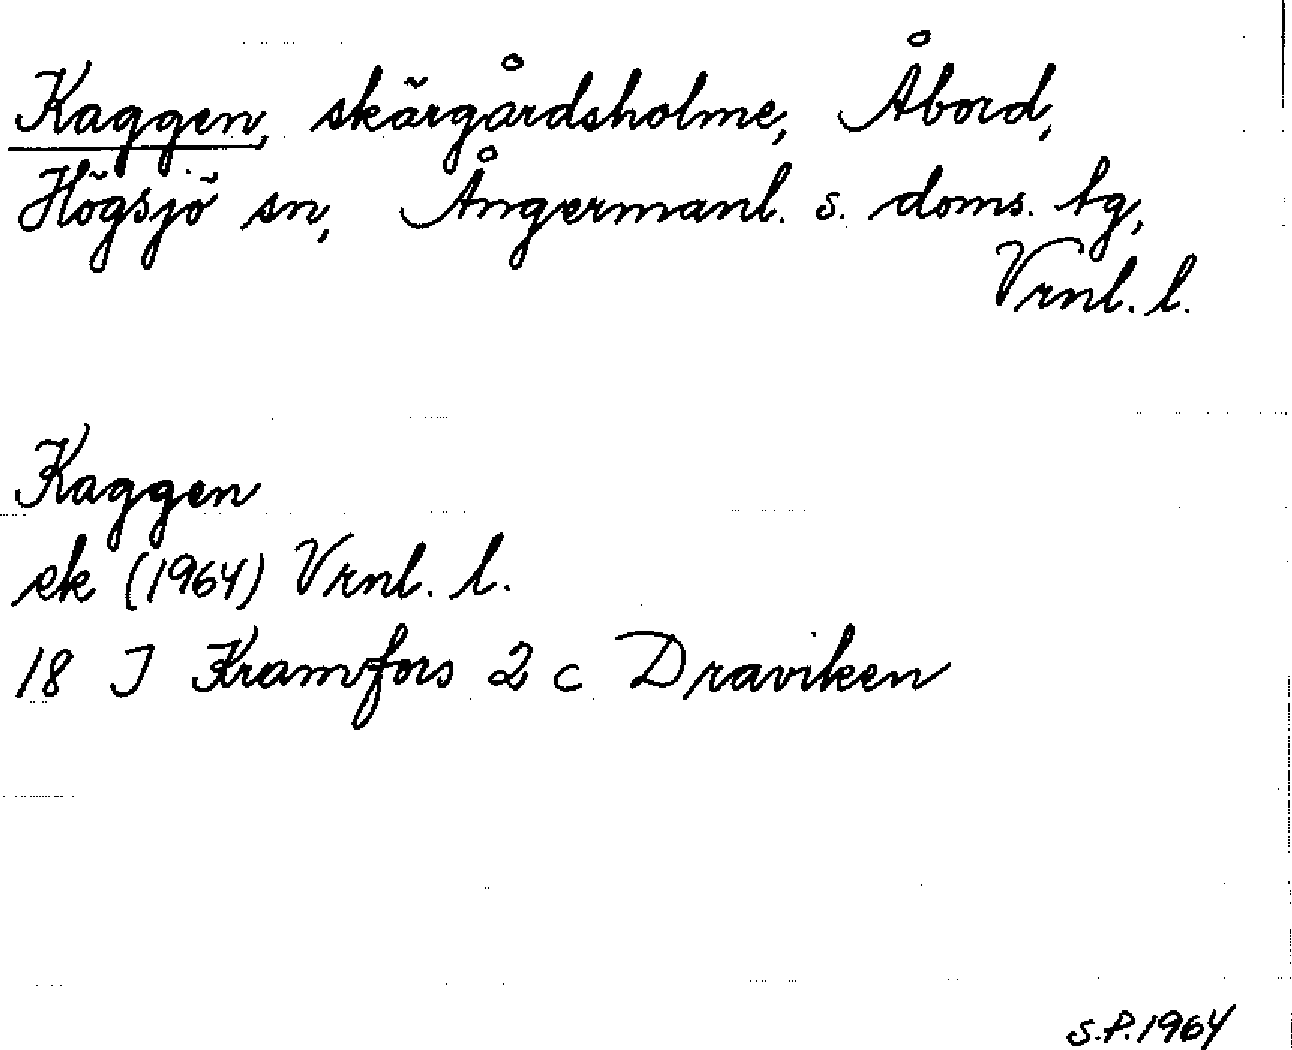 Kaggen, skärgårdsholme, Åbord,
Högsjö sn, Ångermanl. s. doms. tg,
Vrnl. l.
Kaggen
ek (1964) Vrnl. l.
18 J Kramfors 2 c Draviken
S.P. 1964